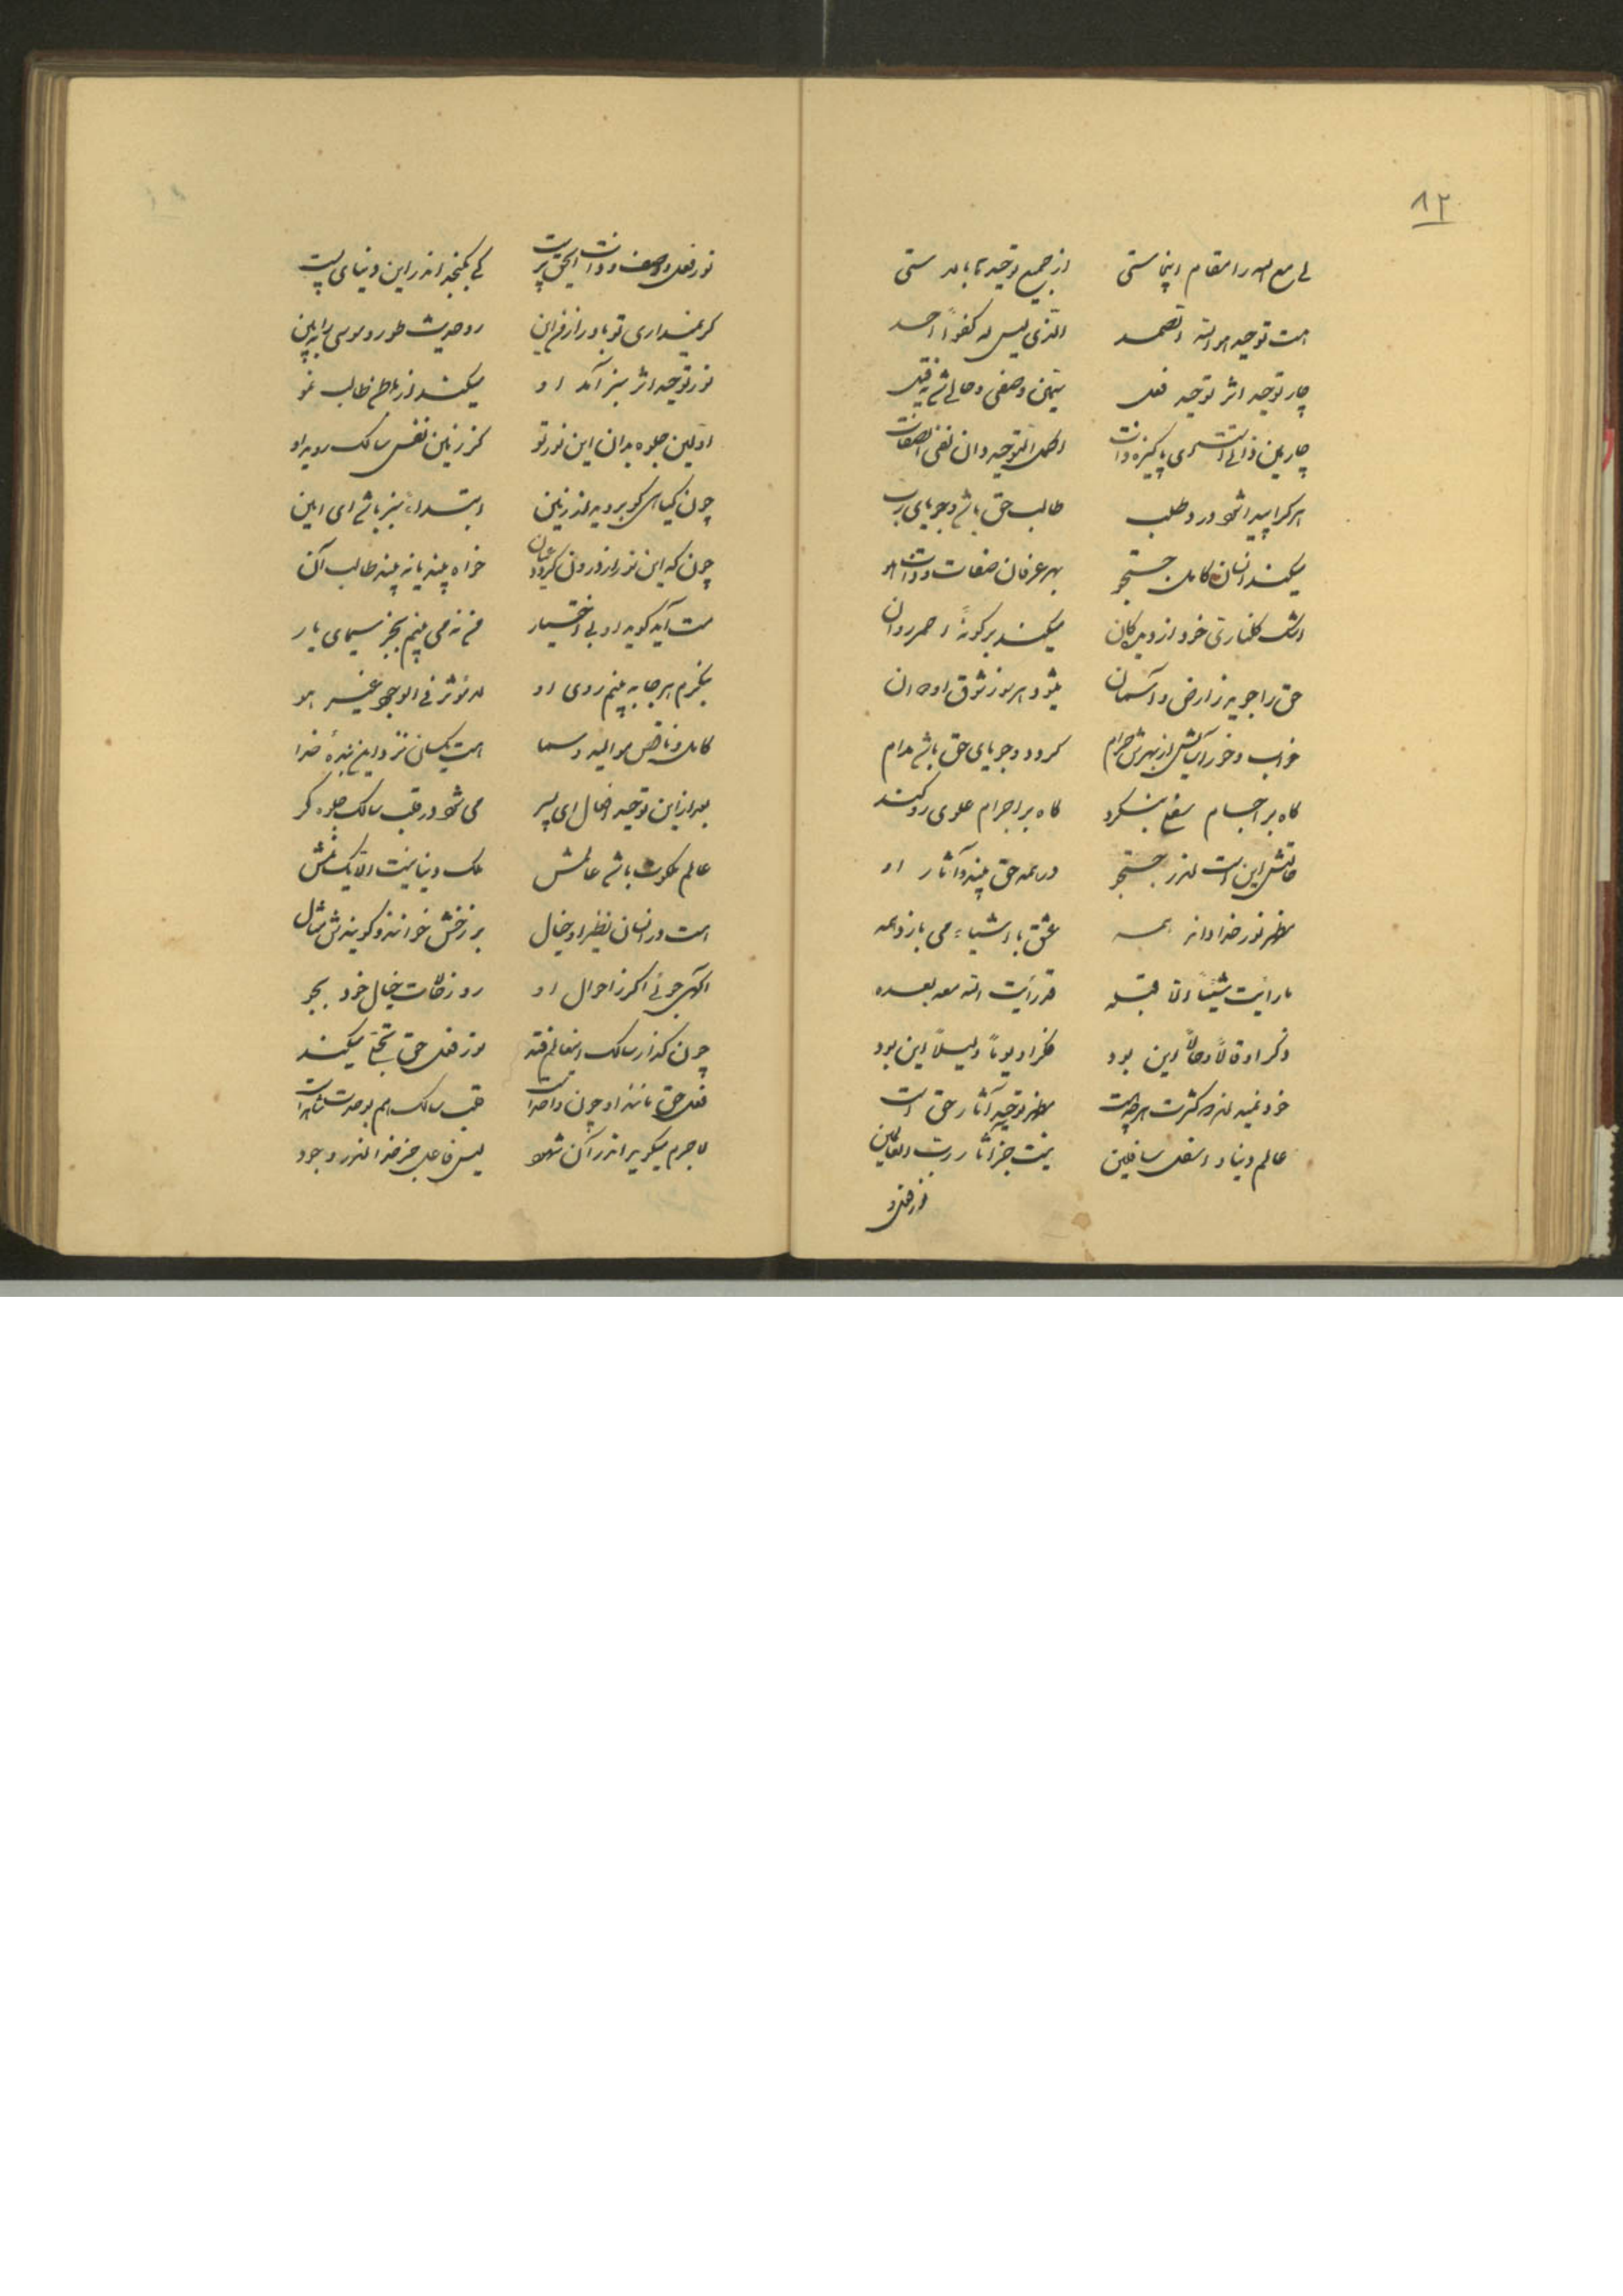 ۸۲
لی مع الله را مقام اینجاستی از جمیع توحیدها بالاستی
هست توحید هو الله الصمد الذی لیس له کفواً احد
چار توحید اثر توحید فعل سیمین وصفی و حالی شد به قیل
چارمین ذاتی است ای پاکیزه ذات اکمل التوحید دان نفی الصفات
هر که را پیدا شود درد طلب طالب حق باشد و جویای رب
میکند انسان کامل جستجو بهر عرفان صفات و ذات هو
اشک گلناری خود از دیدگان میکند بر گونهٔ احمر روان
حق را جوید ز ارض و آسمان میشود هر روز شوق او
خواب و خور آسایش از بهرش حرام گردد و جویای حق باشد مدام
گاه بر اجسام سفلی بنگرد گاه بر اجرام علوی رو کند
حالتش این است اندر جستجو در همه حق بیند و آثار او
مظهر نور خدا داند همه عشق با اشیاء می بازد همه
ما رایت شیئاً الا قبله قد رایت الله معه بعده
ذکر او قالاً و حالاً این بود فکر او یوماً و لیلاً این بود
خود نمید اندر کثرت هرچه هست مظهر توحید آثار حق است
عالم دنیا و اسفل سافلین نیست جز آثار رب العالمین
نور فعل و
نور فعل و وصف و ذات الحق پرست کی بگنجد اندر این دنیای پست
گر نمیداری تو باور از من این رو حدیث طور و موسی را ببین
نور توحید اثر سبز آمد او میکند از باطن طالب نمو
اولین جلوه بدان این نور تو کز زمین نفس سالک روید او
چون گیاهی کو بروید از زمین ابتداء سبز باشد ای امین
چون که این نور از درون گردد عیان خواه بیند یا نه بیند طالب آن
مست آید گوید او بی اختیار من نمی بینم بجز سیمای یار
بنگرم هر جا به بینم روی او لا مؤثر فی الوجود غیر هو
کامل و ناقص موالید و سما هست یکسان نزد این بندهٔ خدا
بعد از این توحید افعال ای پسر می شود در قلب سالک جلوه گر
عالم ملکوت باشد عالمش ملک دنیا نیست الا یک نمش
هست در انسان نظیر او خیال برزخش خوانند و گویندش مثال
آگهی جوئی اگر ز احوال او رو ز حالات خیال خود بجو
چون گذار سالک افتد نور فعل حق تجلی میکند
فعل حق مانند او چون واحد است قلب سالک هم بوحدت شاهد است
لاجرم میگوید اندر آن شهود لیس فاعل جز خدا اندر وجود